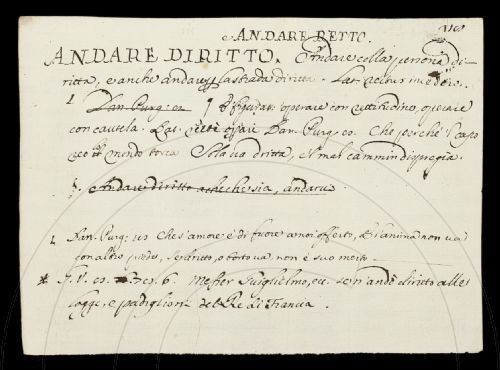 ANDARE RETTO.
ANDARE DIRITTO. Andare colla persona di-
ritta, e anche andare la strada diritta. Lat.
Dan. Purg. ¶ figurat. operare con rettitudine, operare
con cautela. Lat. Dan. Purg. Che perchè 'l capo
reo il mondo torca Sola va dritta, e 'l mal cammin dispregia.
¶. Andare diritto a checchessia, andarvi
Dan. Purg. Che s'amore è di fuore a noi offerto, E l'anima non va
con altro piede, Se dritto, o torto va non è suo merto
* G. V. 6. Messer Guiglielmo, ec. se n'andò diritto alle
logge, e padiglioni del Re di Francia.